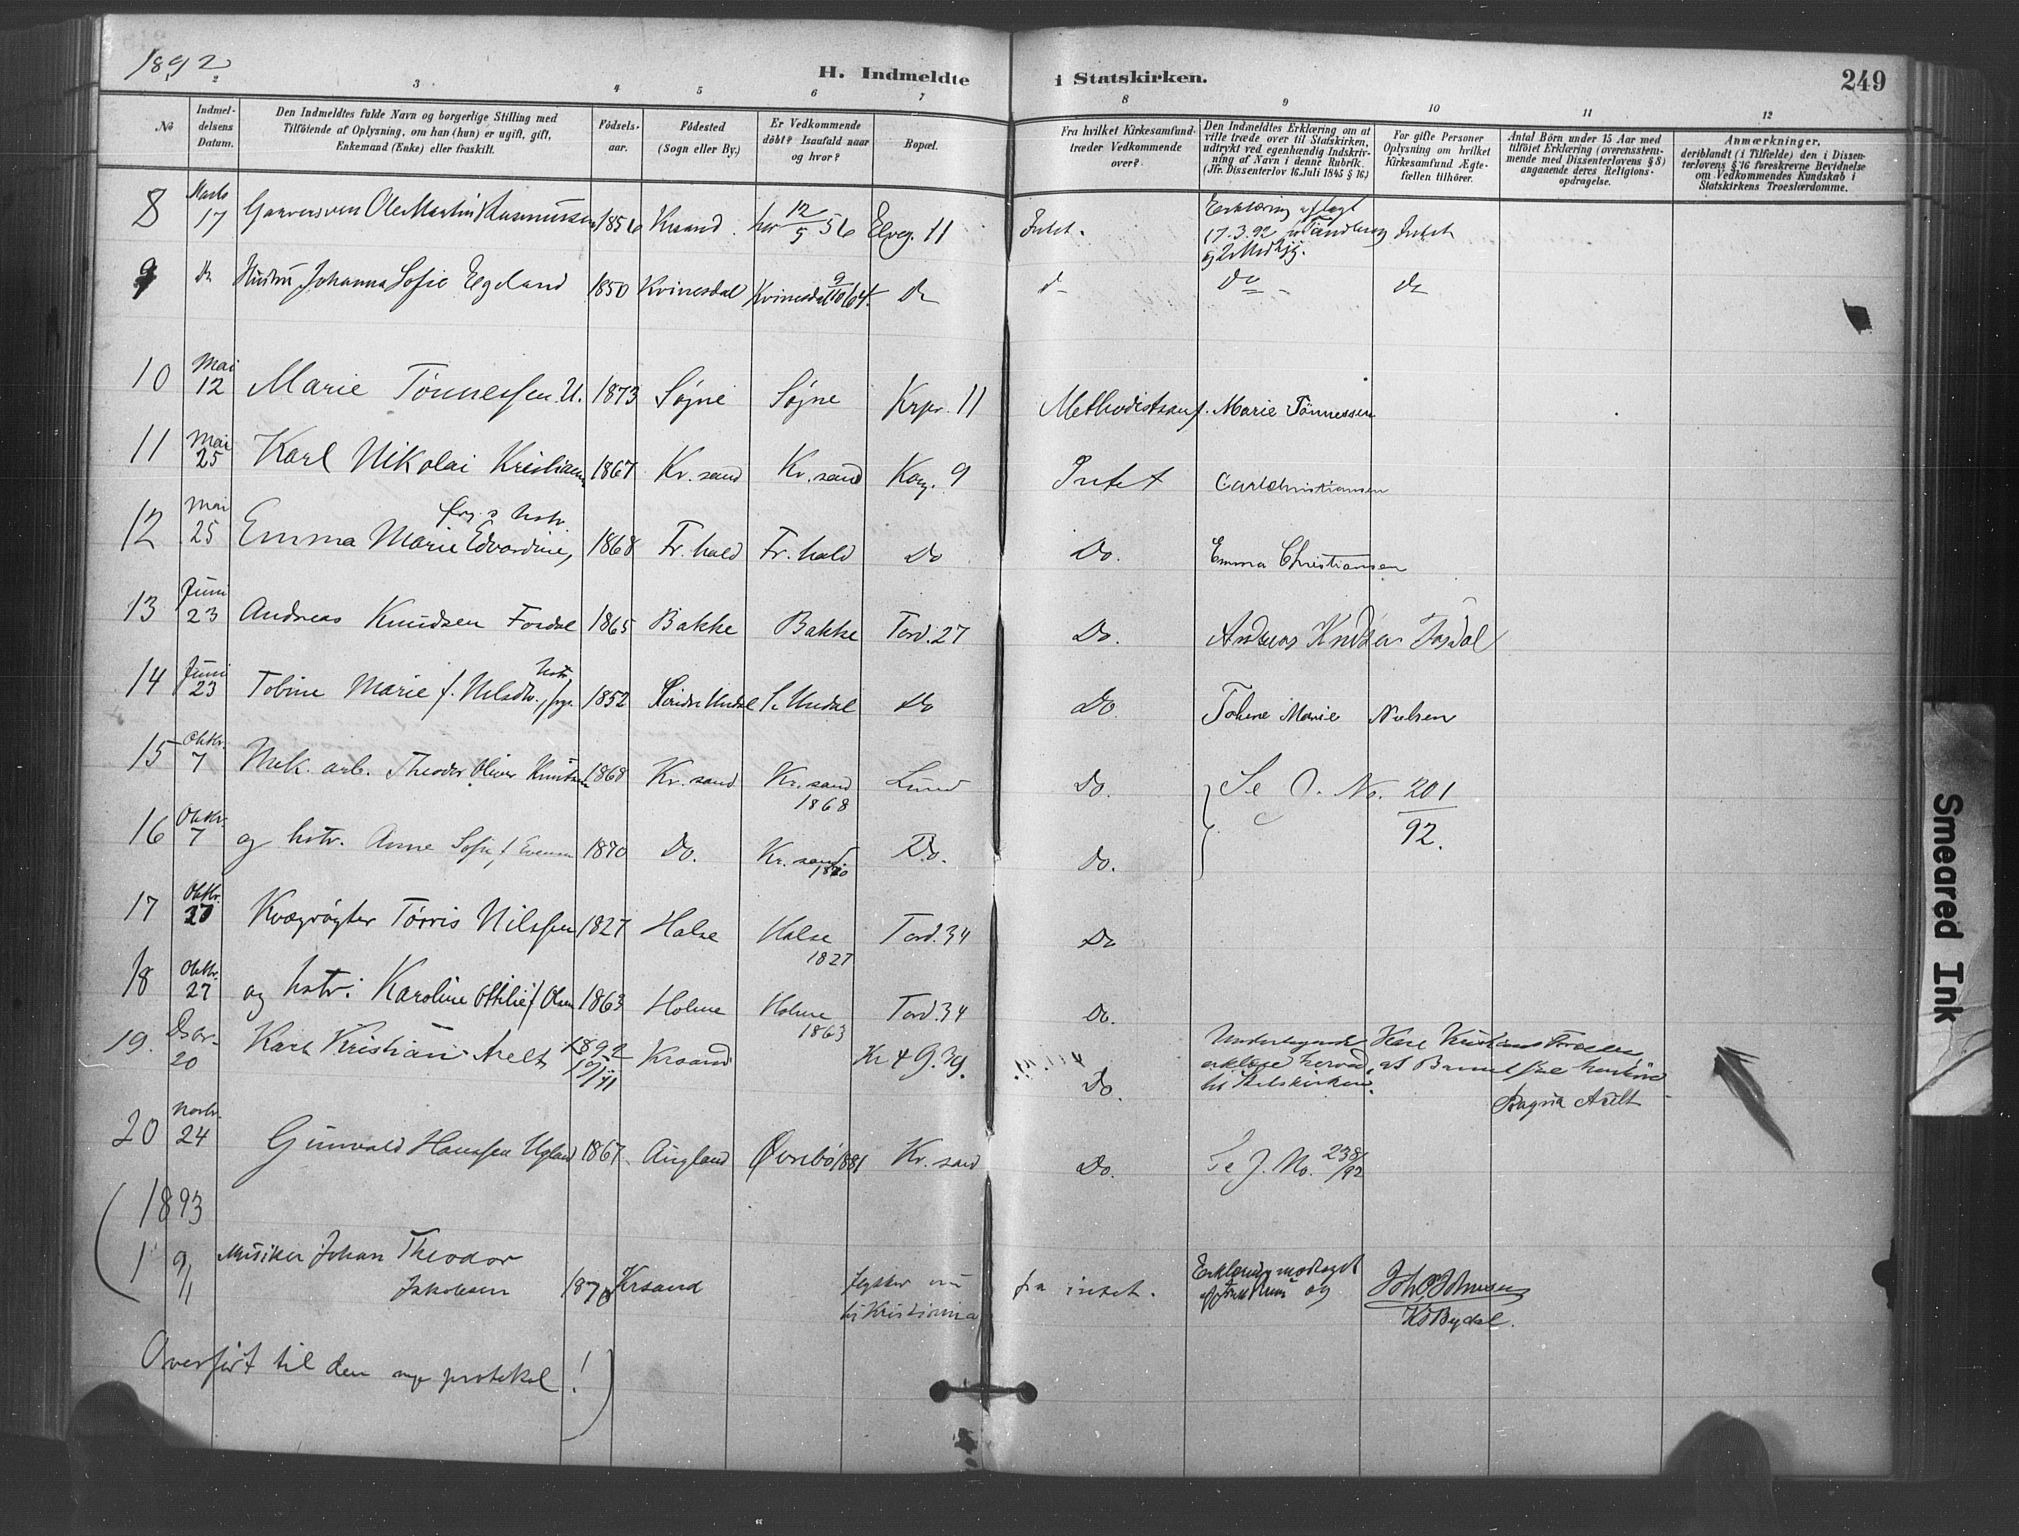 1892
H. Indmeldte i Statskirken.
249
2 3 4 5 6 7 8 9 10 11 12
No
Indmel-
delsens
Datum.
Den Indmeldtes fulde Navn og borgerlige Stilling med
Tilføiende af Oplysning, om han (hun) er ugift, gift,
Enkemand (Enke) eller fraskilt.
Fødsels-
aar.
Fødested
(Sogn eller By.)
Er Vedkommende
døbt? Isaafald naar
og hvor?
Bopæl.
Fra hvilket Kirkesamfund
træder Vedkommende
over?
Den Indmeldtes Erklæring om at
ville træde over til Statskirken,
udtrykt ved egenhændig Indskriv-
ning af Navn i denne Rubrik.
(Jfr. Dissenterlov 16 Juli 1845 § 16.)
For gifte Personer
Oplysning om hvilket
Kirkesamfund Ægte-
fællen tilhører.
Antal Børn under 15 Aar med
tilføiet Erklæring (overensstem-
mende med Dissenterlovens § 8)
angaaende deres Religions-
opdragelse.
Anmærkninger,
deriblandt (i Tilfælde) den i Dissen-
terlovens § 16 foreskrevne Bevidnelse
om Vedkommendes Kundskab i
Statskirkens Troeslærdomme.
8 Marts 17 Garversven Ole Martin Rasmussen 1856 Krsand her 12/5 56 Elveg. 11 Intet. Erklæring aflagt Intet
17.3.92
9 do Hustru Johanna Sofie Egeland 1850 Kvinesdal Kvinesdal 9/10 64. do d- do do
10 Mai 12 Marie Tønnessen U. 1873 Søgne Søgne Krpr. 11 Methodistsamf. Marie Tønnessen
11 Mai 25 Karl Nikolai Kristiansen 1867 Kr.sand Kr.sand Kong. 9 Intet Carl Christiansen
12 Mai 25 frg.s hstr.
Emma Marie Edvardine, 1868 Fr.hald Fr.hald Do Do. Emma Christiansen
13 Juni 23 Andreas Knudsen Fosdal 1865 Bakke Bakke Tord. 27 Do. Andreas Knudsen Fosdal
14 Juni 23 Tobine Marie f. Nilsdtr., frgs hstr. 1852 Søndre Undal S. Undal Do Do. Tobine Marie Nielsen
15 Oktbr. 7 Mek. arb. Theodor Oliver Knutsen 1868 Kr.sand Kr.sand 1868 Lund Do. Se J. No. 201/92.
16 Oktbr. 7 og hstr. Anne Sofie f. Evensen 1870 Do. Kr.sand 1870 Do. Do.
17 Oktbr. 27 Kvægrøgter Tørris Nilssen 1827 Halse Halse 1827 Tord. 34 Do
18 Oktbr. 27 og hstr. Karoline Ottilie f. Olsen 1863 Holme Holme 1863 Tord. 34 Do.
19. 20 Karl Kristian Axelt 1892 Krsand Kr 4 G. 39. Do. Undertegnede
erklære herved, at Barnet skal henhøre
til Statskirken.
Axelt
20 Novbr. 24 Gunvald Hanssen Ugland 1867 Augland Øvrebø 1881 Kr.sand Do. Se J. No. 238/92
1893
1 9/1 Musiker Johan Theodor
Jakobsen 1870 Krsand flytter nu
til Kristiania fra intet. Erklæring modtaget
og
Overført til den nye protokol!
Smeared Ink